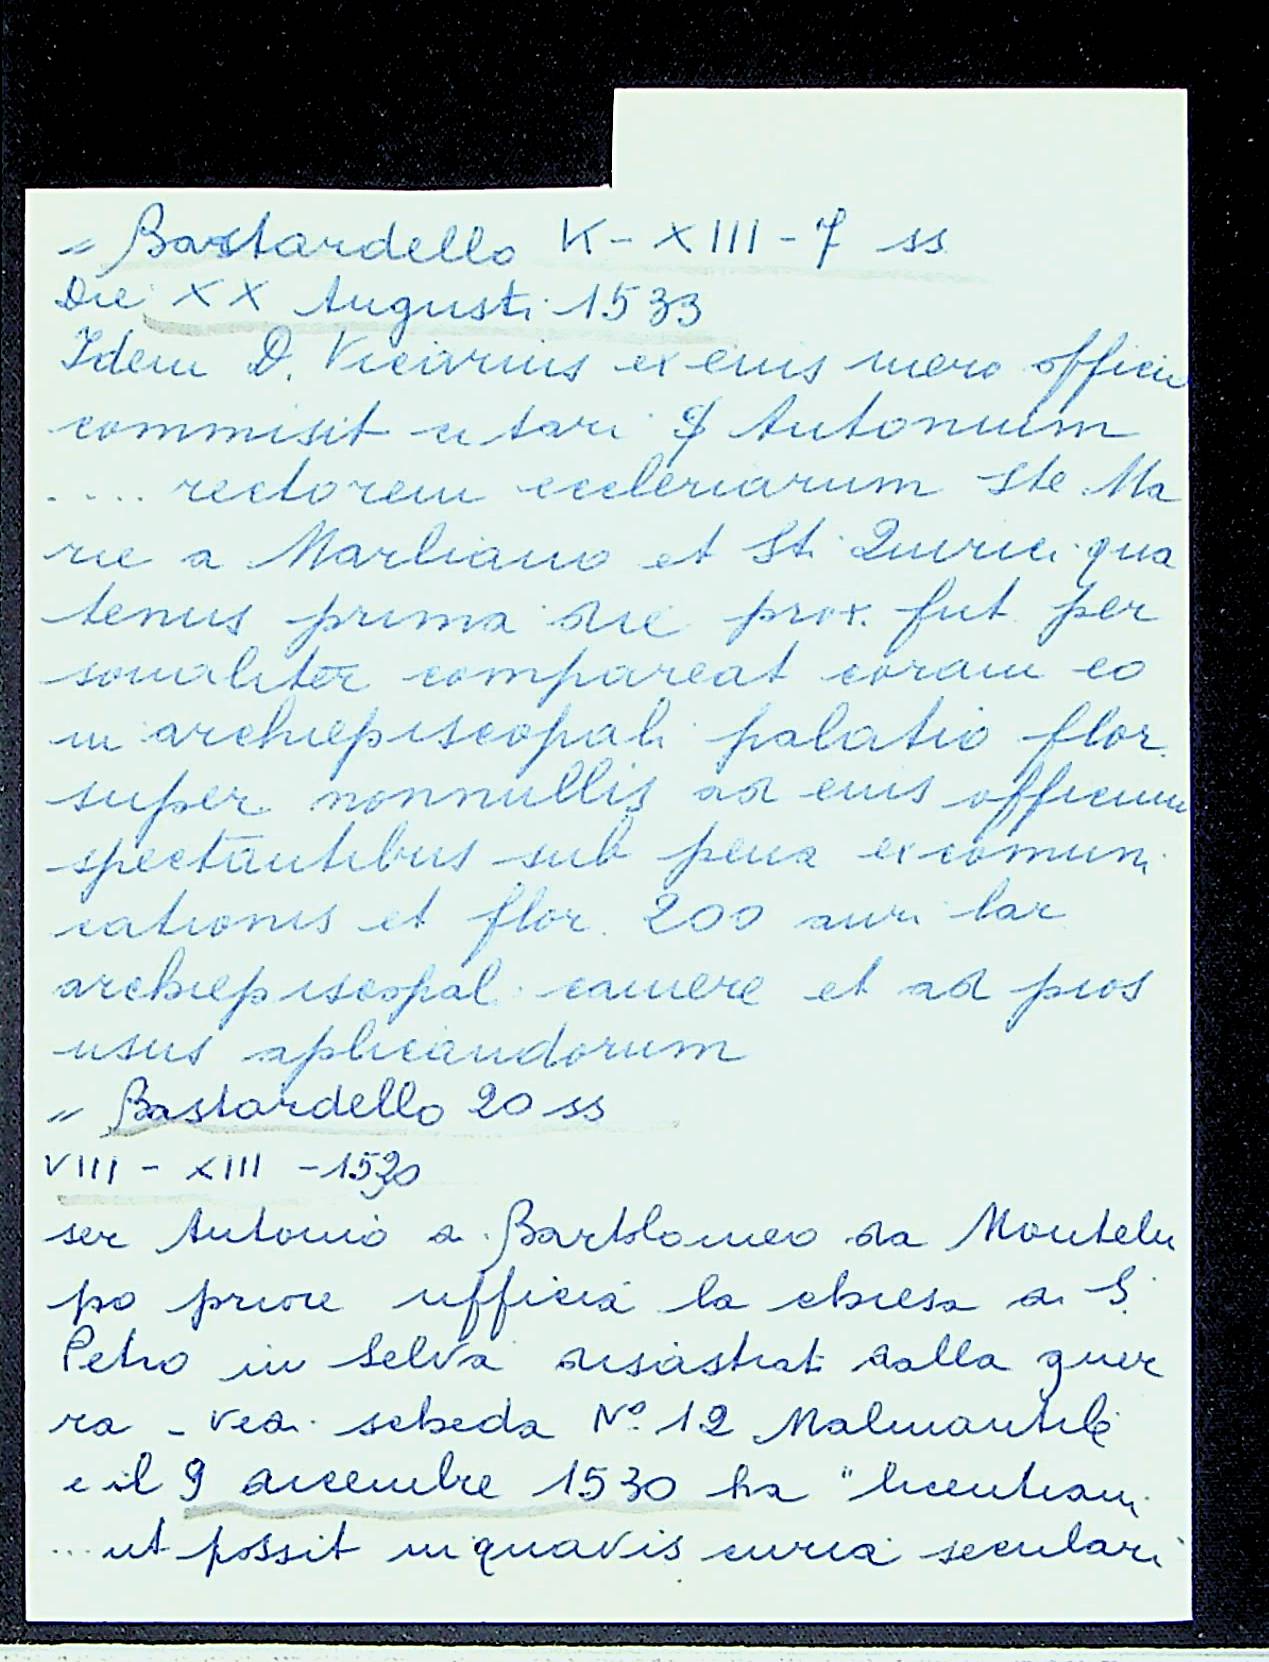 " Bastardello K - XIII - 7 ss
Die XX Augusti 1533
Idem D. Vicarius ex eius mero officio
commisit citari Antonium
.... rectorem ecclesiarum Ste Ma
rie a Marliano et Sti Quirici qua
tenus prima die prox. fut. per
sonaliter compareat coram eo
in archiepiscopali palatio flor.
super nonnullis ad eius officium
spectantibus sub pena excomuni
cationis et flor. 200 auri lar
archiepiscopal. camere et ad pios
usus aplicandorum
" Bastardello 20 ss
VIII - XIII - 1530
ser Antonio di Bartolomeo da Montelu
po priore ufficia la chiesa di S.
Petro in Selva disastrat. dalla guer
ra - vedi scheda N° 12 Malmantile
e il 9 dicembre 1530 ha "licentiam
... ut possit in quavis curia seculari